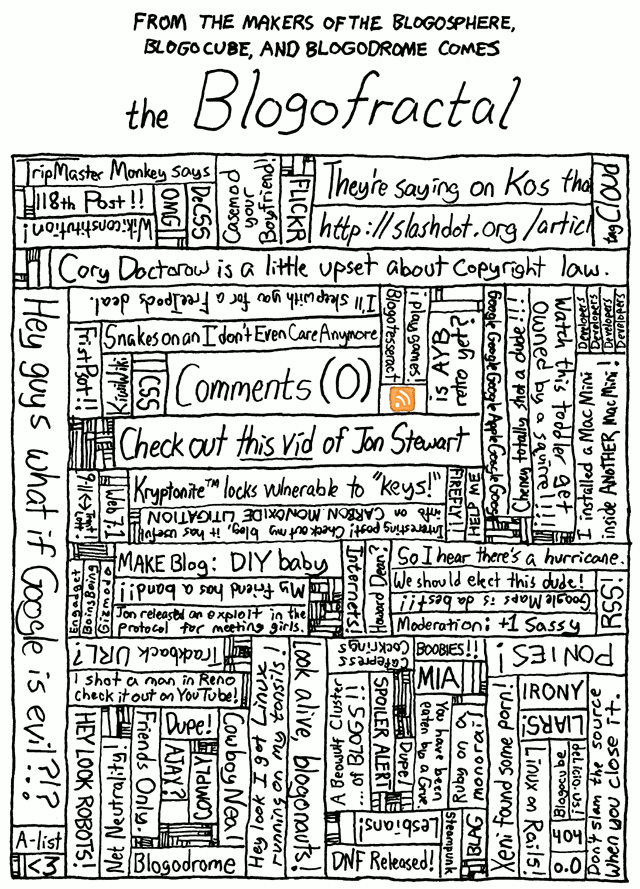 FROM THE MAKERS OF THE BLOGOSPHERE,
BLOGOCUBE, AND BLOGODROME COMES
the Blogofractal
TripMaster Monkey says
118th Post!!
Wikiconstitution!
OMG
DeCSS
Casemod
your
Boyfriend!
FLICKR
They're saying on Kos tha
http://slashdot.org/articl
tag Cloud
Cory Doctorow is a little upset about copyright law.
Hey guys what if Google is evil?!?
I'll sleep with you for a FreeIpods deal.
Snakes on an I don't Even Care Anymore
FirstPost!!
KiwiWiki
CSS
Comments (0)
Blogotesseract
I play games!
is AYB
retro yet?
Google Google Google Apple Google Google
Cheney totally shot a dude!!!
Watch this toddler get
Owned by a squirrel!!!
Developers
Developers
Developers
Developers
I installed a Mac Mini
inside ANOTHER Mac Mini!
Check out this vid of Jon Stewart
Web 7.1
Kryptonite™ locks vulnerable to "keys!"
Interesting post! Check out my blog, it has useful
info on CARBON MONOXIDE LITIGATION
FIREFLY!!
HELP ME
Engadget
BoingBoing
Gizmodo
MAKE Blog: DIY baby
My friend has a band!!
Jon released an exploit in the
protocol for meeting girls.
Internets!
Howard Dean?
So I hear there's a hurricane.
We should elect this dude!
Google Maps is da best!!
Moderation: +1 Sassy
RSS!
Trackback URL?
I shot a man in Reno
check it out on YouTube!
HEY LOOK ROBOTS!
Net Neutrality!
Friends Only.
Dupe!
AJAX?
COMPLY!
Cowboy Neal
Blogodrome
Hey look I got Linux
running on my tonsils!
Look alive, blogonauts!
Cafepress
Cockrings
A Beowulf Cluster
... of BLOGS!!
SPOILER ALERT!
Dupe!
BOOBIES!!
MIA
You have been
eaten by a Grue
Ruby on a
monorail
Lesbians!
DNF Released!
Steampunk
BLAG
PONIES!
Xeni found some porn!
IRONY
LIARS!
Linux on Rails!
Blogocube
del.icio.us!
404
0.0
Don't slam the source
when you close it.
A-list
<3